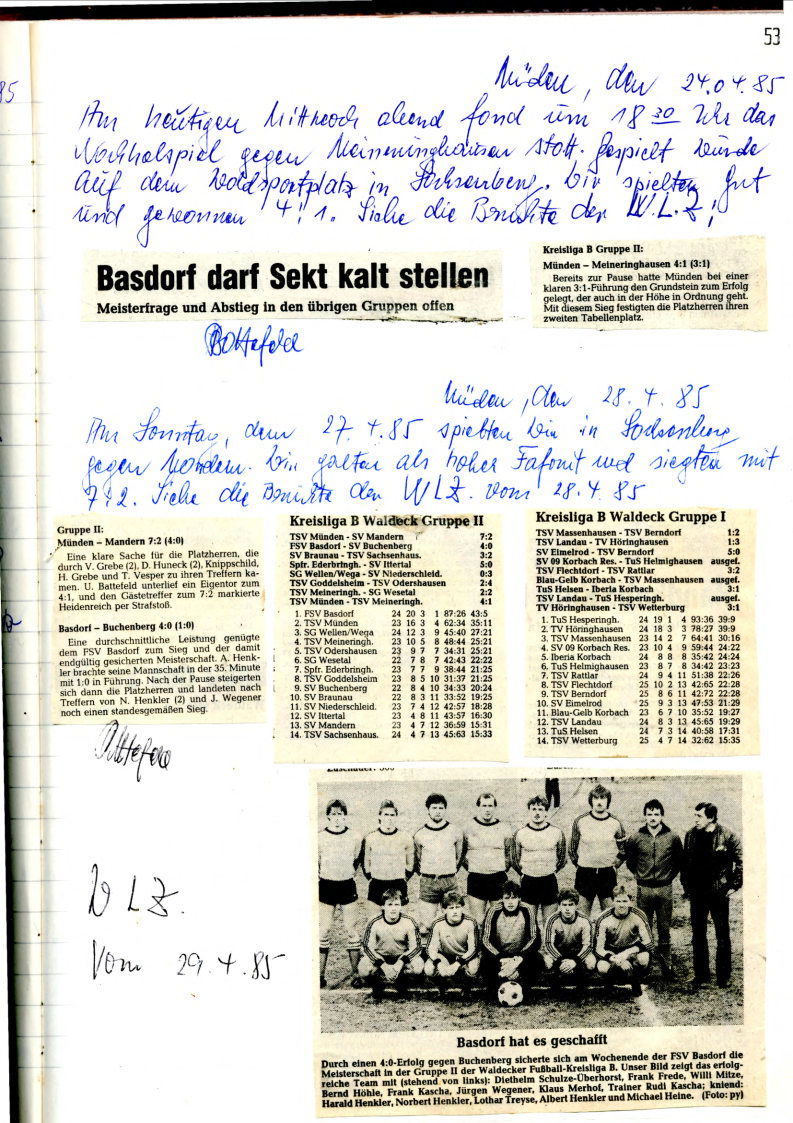 53
85
Münden, den 24.04.85
Am heutigen Mittwoch abend fand um 18 30 Uhr das
Nachholspiel gegen Meineringhausen statt. Gespielt wurde
auf dem Waldsportplatz in Sachsenberg. Wir spielten gut
und gewonnen 4:1. Siehe die Berichte der W.L.Z!
Basdorf darf Sekt kalt stellen
Meisterfrage und Abstieg in den übrigen Gruppen offen
Kreisliga B Gruppe II:
Münden – Meineringhausen 4:1 (3:1)
Bereits zur Pause hatte Münden bei einer
klaren 3:1-Führung den Grundstein zum Erfolg
gelegt, der auch in der Höhe in Ordnung geht.
Mit diesem Sieg festigten die Platzherren ihren
zweiten Tabellenplatz.
Münden, den 28.4.85
Am Sonntag, dem 27.4.85 spielten wir in Sachsenberg
gegen Mandern. Wir galten als hoher Faforit und siegten mit
7:2. Siehe die Berichte der WLZ. vom 28.4.85
Gruppe II:
Münden – Mandern 7:2 (4:0)
Eine klare Sache für die Platzherren, die
durch V. Grebe (2), D. Huneck (2), Knippschild,
H. Grebe und T. Vesper zu ihren Treffern ka-
men. U. Battefeld unterlief ein Eigentor zum
4:1, und den Gästetreffer zum 7:2 markierte
Heidenreich per Strafstoß.
Basdorf – Buchenberg 4:0 (1:0)
Eine durchschnittliche Leistung genügte
dem FSV Basdorf zum Sieg und der damit
endgültig gesicherten Meisterschaft. A. Henk-
ler brachte seine Mannschaft in der 35. Minute
mit 1:0 in Führung. Nach der Pause steigerten
sich dann die Platzherren und landeten nach
Treffern von N. Henkler (2) und J. Wegener
noch einen standesgemäßen Sieg.
Kreisliga B Waldeck Gruppe II
TSV Münden - SV Mandern 7:2
FSV Basdorf - SV Buchenberg 4:0
SV Braunau - TSV Sachsenhaus. 3:2
Spfr. Ederbringh. - SV Ittertal 5:0
SG Wellen/Wega - SV Niederschleid. 0:3
TSV Goddelsheim - TSV Odershausen 2:4
TSV Meineringh. - SG Wesetal 2:2
TSV Münden - TSV Meineringh. 4:1
1. FSV Basdorf 24 20 3 1 87:26 43:5
2. TSV Münden 23 16 3 4 62:34 35:11
3. SG Wellen/Wega 24 12 3 9 45:40 27:21
4. TSV Meineringh. 23 10 5 8 48:44 25:21
5. TSV Odershausen 23 9 7 7 34:31 25:21
6. SG Wesetal 22 7 8 7 42:43 22:22
7. Spfr. Ederbringh. 23 7 7 9 38:44 21:25
8. TSV Goddelsheim 23 8 5 10 31:37 21:25
9. SV Buchenberg 22 8 4 10 34:33 20:24
10. SV Braunau 22 8 3 11 33:52 19:25
11. SV Niederschleid. 23 7 4 12 42:57 18:28
12. SV Ittertal 23 4 8 11 43:57 16:30
13. SV Mandern 23 4 7 12 36:59 15:31
14. TSV Sachsenhaus. 24 4 7 13 45:63 15:33
Kreisliga B Waldeck Gruppe I
TSV Massenhausen - TSV Berndorf 1:2
TSV Landau - TV Höringhausen 1:3
SV Eimelrod - TSV Berndorf 5:0
SV 09 Korbach Res. - TuS Helmighausen ausgef.
TSV Flechtdorf - TSV Rattlar 3:2
Blau-Gelb Korbach - TSV Massenhausen ausgef.
TuS Helsen - Iberia Korbach 3:1
TSV Landau - TuS Hesperingh. ausgef.
TV Höringhausen - TSV Wetterburg 3:1
1. TuS Hesperingh. 24 19 1 4 93:36 39:9
2. TV Höringhausen 24 18 3 3 78:27 39:9
3. TSV Massenhausen 23 14 2 7 64:41 30:16
4. SV 09 Korbach Res. 23 10 4 9 59:44 24:22
5. Iberia Korbach 24 8 8 8 35:42 24:24
6. TuS Helmighausen 23 8 7 8 34:42 23:23
7. TSV Rattlar 24 9 4 11 51:38 22:26
8. TSV Flechtdorf 25 10 2 13 42:65 22:28
9. TSV Berndorf 25 8 6 11 42:72 22:28
10. SV Eimelrod 25 9 3 13 47:53 21:29
11. Blau-Gelb Korbach 23 6 7 10 35:52 19:27
12. TSV Landau 24 8 3 13 45:65 19:29
13. TuS Helsen 24 7 3 14 40:58 17:31
14. TSV Wetterburg 25 4 7 14 32:62 15:35
WLZ.
Vom 29.4.85
Basdorf hat es geschafft
Durch einen 4:0-Erfolg gegen Buchenberg sicherte sich am Wochenende der FSV Basdorf die
Meisterschaft in der Gruppe II der Waldecker Fußball-Kreisliga B. Unser Bild zeigt das erfolg-
reiche Team mit (stehend von links): Diethelm Schulze-Überhorst, Frank Frede, Willi Mitze,
Bernd Höhle, Frank Kascha, Jürgen Wegener, Klaus Merhof, Trainer Rudi Kascha; kniend:
Harald Henkler, Norbert Henkler, Lothar Treyse, Albert Henkler und Michael Heine. (Foto: py)